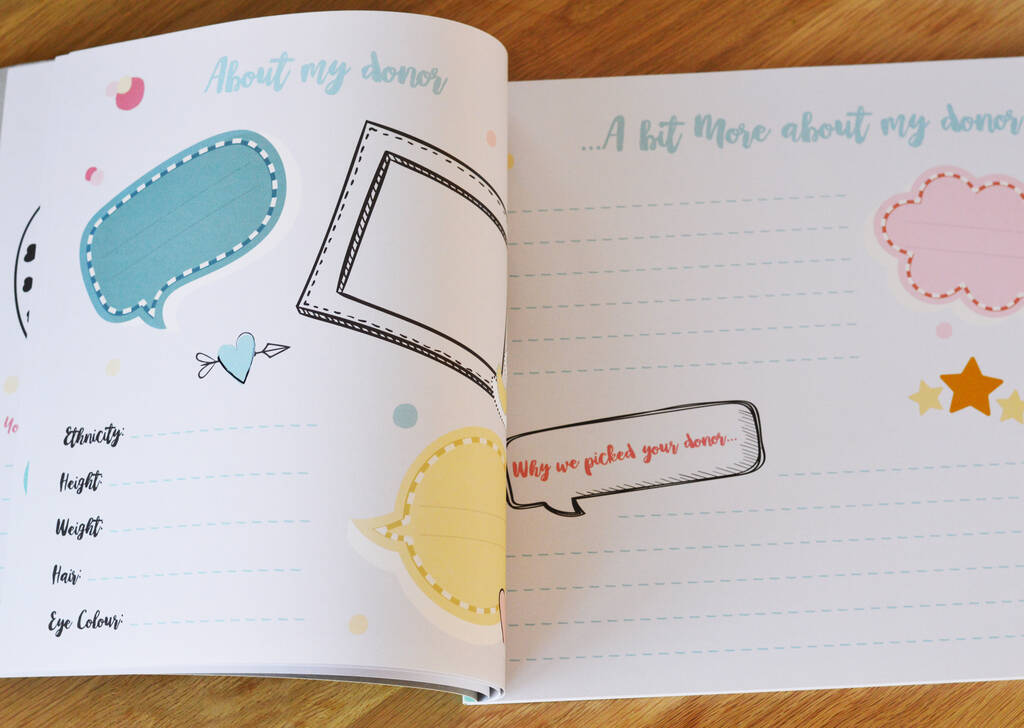 About my donor
Ethnicity:
Height:
Weight:
Hair:
Eye Colour:
...A bit More about my donor
Why we picked your donor...